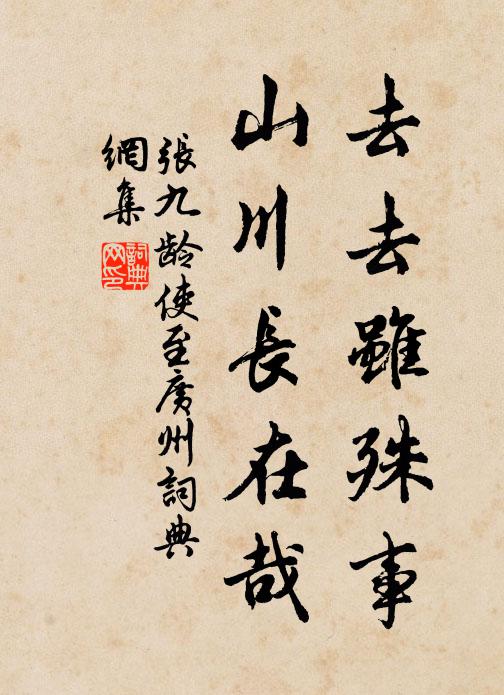 去去雖殊事
山川長在哉
張九龄使至廣州詞典
網集
詞典
网印